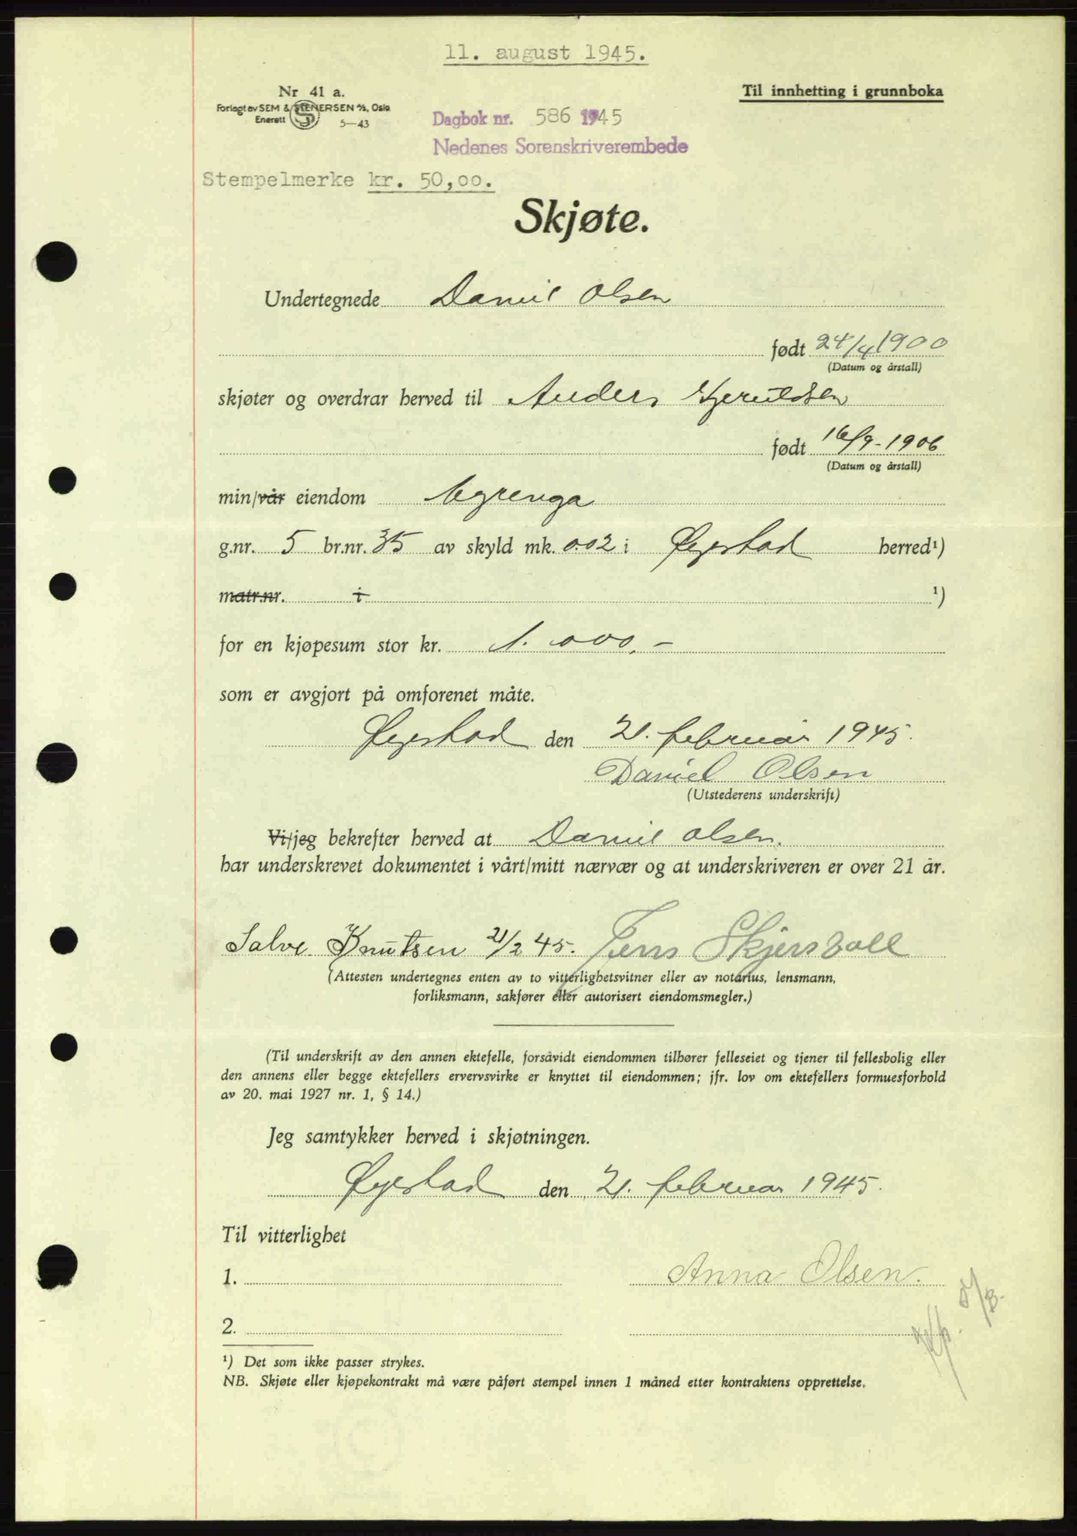 11. august 1945.
Nr 41 a.
Forlagt av SEM & STENERSEN A/S, Oslo
Enerett 5-43
Til innhefting i grunnboka
Dagbok nr. 586 1945
Nedenes Sorenskriverembede
Stempelmerke kr. 50,00.
Skjøte.
Undertegnede Daniel Olsen
født 24/4 1900
(Datum og årstall)
skjøter og overdrar herved til Anders
født 16/9-1906
(Datum og årstall)
min/vår eiendom
g.nr. 5 br.nr. 35 av skyld mk. 0.02 i Øyestad herred¹)
matr.nr. i ¹)
for en kjøpesum stor kr. 1.000,-
som er avgjort på omforenet måte.
Øyestad den 21. februar 1945.
Daniel Olsen
(Utstederens underskrift)
Vi/jeg bekrefter herved at Daniel Olsen.
har underskrevet dokumentet i vårt/mitt nærvær og at underskriveren er over 21 år.
Salve Knutsen 21/2 45. Jens
(Attesten undertegnes enten av to vitterlighetsvitner eller av notarius, lensmann,
forliksmann, sakfører eller autorisert eiendomsmegler.)
(Til underskrift av den annen ektefelle, forsåvidt eiendommen tilhører felleseiet og tjener til fellesbolig eller
den annens eller begge ektefellers ervervsvirke er knyttet til eiendommen; jfr. lov om ektefellers formuesforhold
av 20. mai 1927 nr. 1, § 14.)
Jeg samtykker herved i skjøtningen.
Øyestad den 21. februar 1945.
Til vitterlighet
1. Anna Olsen.
2.
¹) Det som ikke passer strykes.
NB. Skjøte eller kjøpekontrakt må være påført stempel innen 1 måned etter kontraktens opprettelse.